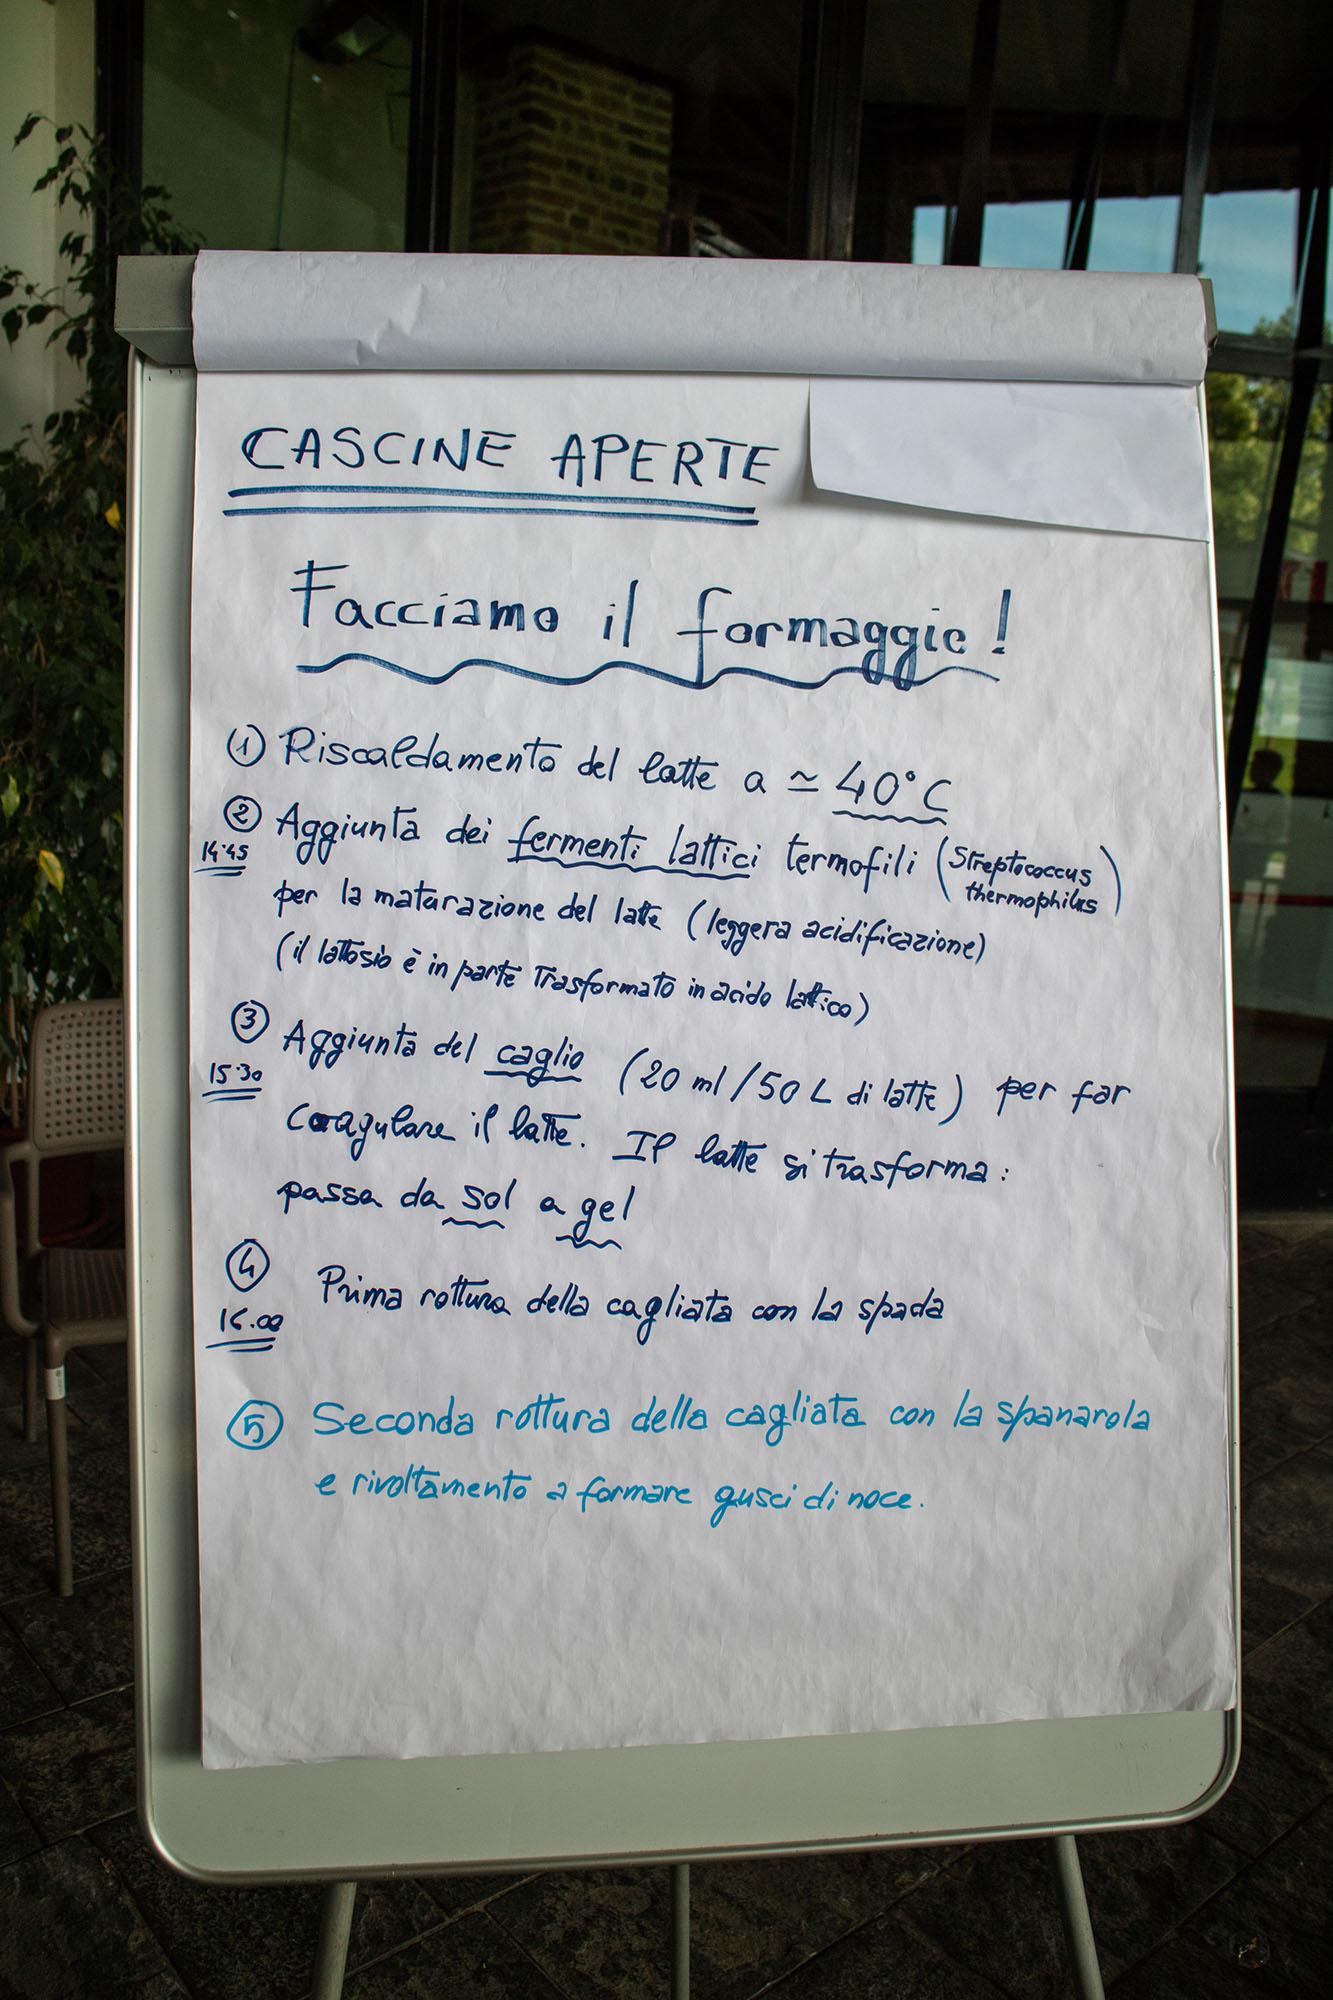 CASCINE APERTE
Facciamo il formaggio!
① Riscaldamento del latte a ≃ 40°C
② Aggiunta dei fermenti lattici termofili (Streptococcus thermophilus)
14.45
per la maturazione del latte (leggera acidificazione)
(il lattosio è in parte trasformato in acido lattico)
③ Aggiunta del caglio (20 ml/50 L di latte) per far
15.30
coagulare il latte. Il latte si trasforma:
passa da sol a gel
④ Prima rottura della cagliata con la spada
16.00
⑤ Seconda rottura della cagliata con la spanarola
e rivoltamento a formare gusci di noce.